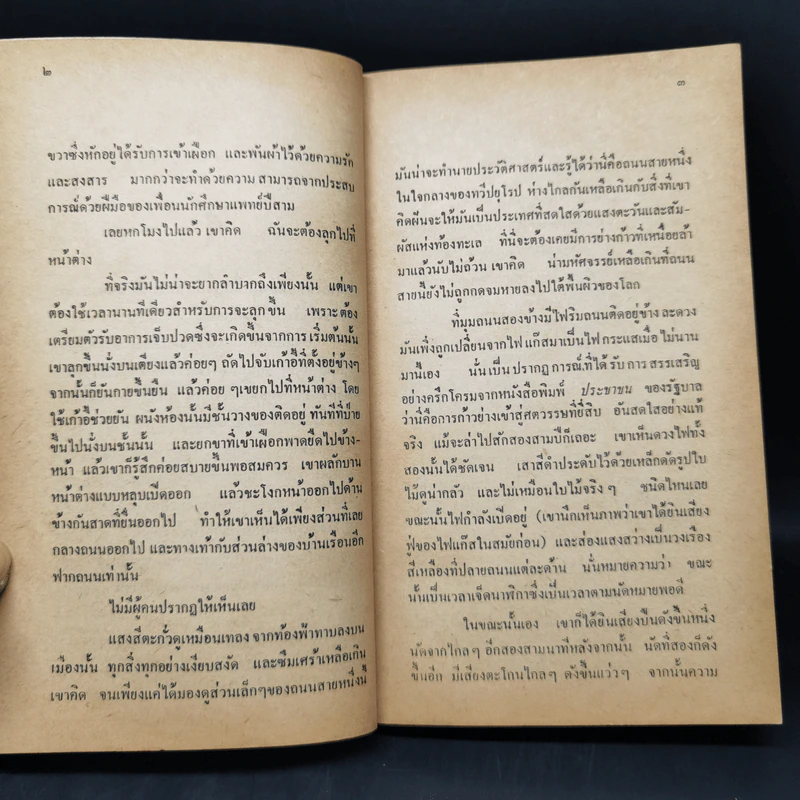 ๒
ขวาซึ่งหักอยู่ได้รับการเข้าเฝือก และพันผ้าไว้ด้วยความรัก
และสงสาร มากกว่าจะทำด้วยความสามารถจากประสบ
การณ์ด้วยฝีมือของเพื่อนนักศึกษาแพทย์ปีสาม
เลยหกโมงไปแล้ว เขาคิด ฉันจะต้องลุกไปที่
หน้าต่าง
ที่จริงมันไม่น่าจะยากลำบากถึงเพียงนั้น แต่เขา
ต้องใช้เวลานานทีเดียวสำหรับการจะลุกขึ้น เพราะต้อง
เตรียมตัวรับอาการเจ็บปวดซึ่งจะเกิดขึ้นจากการ เริ่มต้นนั้น
เขาลุกขึ้นนั่งบนเตียงแล้วค่อยๆ ถัดไปจับเก้าอี้ที่ตั้งอยู่ข้างๆ
จากนั้นก็ยันกายขึ้นยืน แล้วค่อย ๆเขยกไปที่หน้าต่าง โดย
ใช้เก้าอี้ช่วยยัน ผนังห้องนั้นมีชั้นวางของติดอยู่ ทันทีที่ป่าย
ขึ้นไปนั่งบนชั้นนั้น และยกขาที่เข้าเฝือกพาดยืดไปข้าง-
หน้า แล้วเขาก็รู้สึกค่อยสบายขึ้นพอสมควร เขาผลักบาน
หน้าต่างแบบหลุบเปิดออก แล้วชะโงกหน้าออกไปด้าน
ข้างกันสาดที่ยื่นออกไป ทำให้เขาเห็นได้เพียงส่วนที่เลย
กลางถนนออกไป และทางเท้ากับส่วนล่างของบ้านเรือนอีก
ฟากถนนเท่านั้น
ไม่มีผู้คนปรากฏให้เห็นเลย
แสงสีตะกั่วดูเหมือนเทลง จากท้องฟ้าทาบลงบน
เมืองนั้น ทุกสิ่งทุกอย่างเงียบสงัด และซึมเศร้าเหลือเกิน
เขาคิด จนเพียงแค่ได้มองดูส่วนเล็กๆของถนนสายหนึ่งนี้
๓
มันน่าจะทำนายประวัติศาสตร์และรู้ได้ว่านี่คือถนนสายหนึ่ง
ในใจกลางของทวีปยุโรป ห่างไกลกันเหลือเกินกับสิ่งที่เขา
คิดฝันจะให้มันเป็นประเทศที่สดใสด้วยแสงตะวันและสัม-
ผัสแห่งท้องทะเล ที่นี่จะต้องเคยมีการย่างก้าวที่เหนื่อยล้า
มาแล้วนับไม่ถ้วน เขาคิด น่ามหัศจรรย์เหลือเกินที่ถนน
สายนี้ยังไม่ถูกกดจมหายลงไปใต้พื้นผิวของโลก
ที่มุมถนนสองข้างมีไฟริมถนนติดอยู่ข้าง ละดวง
มันเพิ่งถูกเปลี่ยนจากไฟ แก๊สมาเป็นไฟ กระแสเมื่อ ไม่นาน
มานี้เอง นั่น เป็น ปรากฏ การณ์ ที่ได้ รับ การ สรรเสริญ
อย่างครึกโครมจากหนังสือพิมพ์ ประชาชน ของรัฐบาล
ว่านี่คือการก้าวย่างเข้าสู่ศตวรรษที่ยี่สิบ อันสดใสอย่างแท้
จริง แม้จะล่าไปสักสองสามปีก็เถอะ เขาเห็นดวงไฟทั้ง
สองนั้นได้ชัดเจน เสาสีดำประดับไว้ด้วยเหล็กดัดรูปใบ
ไม้ดูน่ากลัว และไม่เหมือนใบไม้จริง ๆ ชนิดไหนเลย
ขณะนั้นไฟกำลังเปิดอยู่ (เขานึกเห็นภาพว่าเขาได้ยินเสียง
ฟู่ของไฟแก๊สในสมัยก่อน) และส่องแสงสว่างเป็นวงเรือง
สีเหลืองที่ปลายถนนแต่ละด้าน นั่นหมายความว่า ขณะ
นั้นเป็นเวลาเจ็ดนาฬิกาซึ่งเป็นเวลาตามนัดหมายพอดี
ในขณะนั้นเอง เขาก็ได้ยินเสียงปืนดังขึ้นหนึ่ง
นัดจากไกลๆ อีกสองสามนาทีหลังจากนั้น นัดที่สองก็ดัง
ขึ้นอีก มีเสียงตะโกนไกลๆ ดังขึ้นแว่วๆ จากนั้นความ